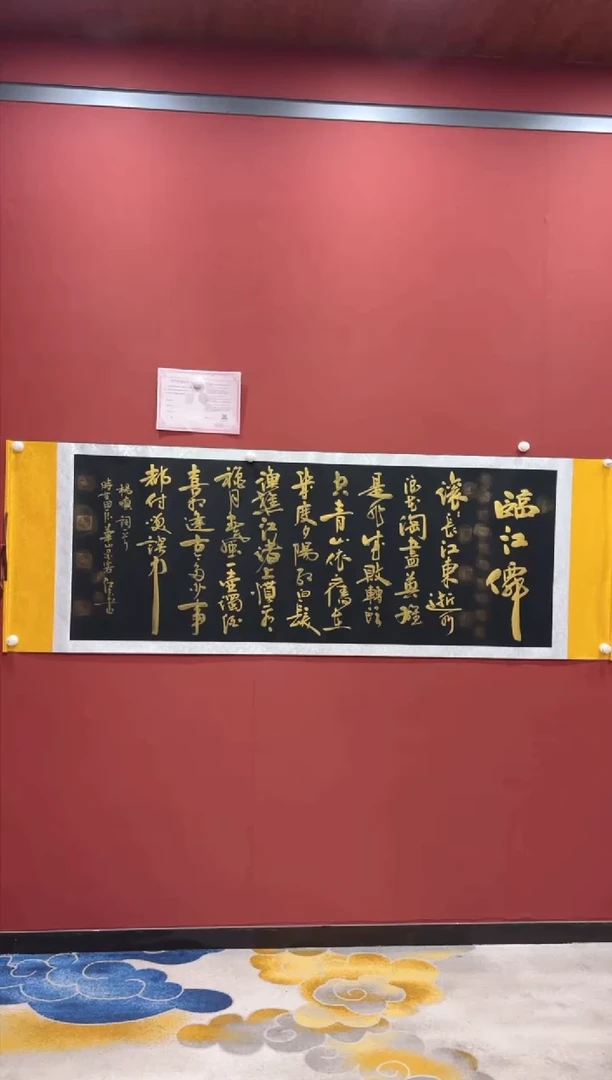 臨江僊
滚滚長江東逝水
浪花淘盡英雄
是非成敗轉頭
空青山依舊在
幾度夕陽紅白髮
漁樵江渚上慣看
秋月春風一壺濁酒
喜相逢古今多少事
都付笑談中
楊慎詞